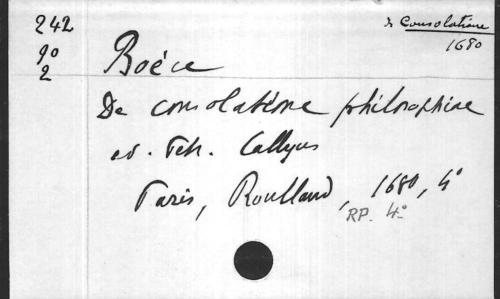 242
90
2
De Consolatione
1680
Boéce
De consolatione philosophiae
ed. Petr. Callyus
Paris, Roulland, 1680, 4°
RP. 4°